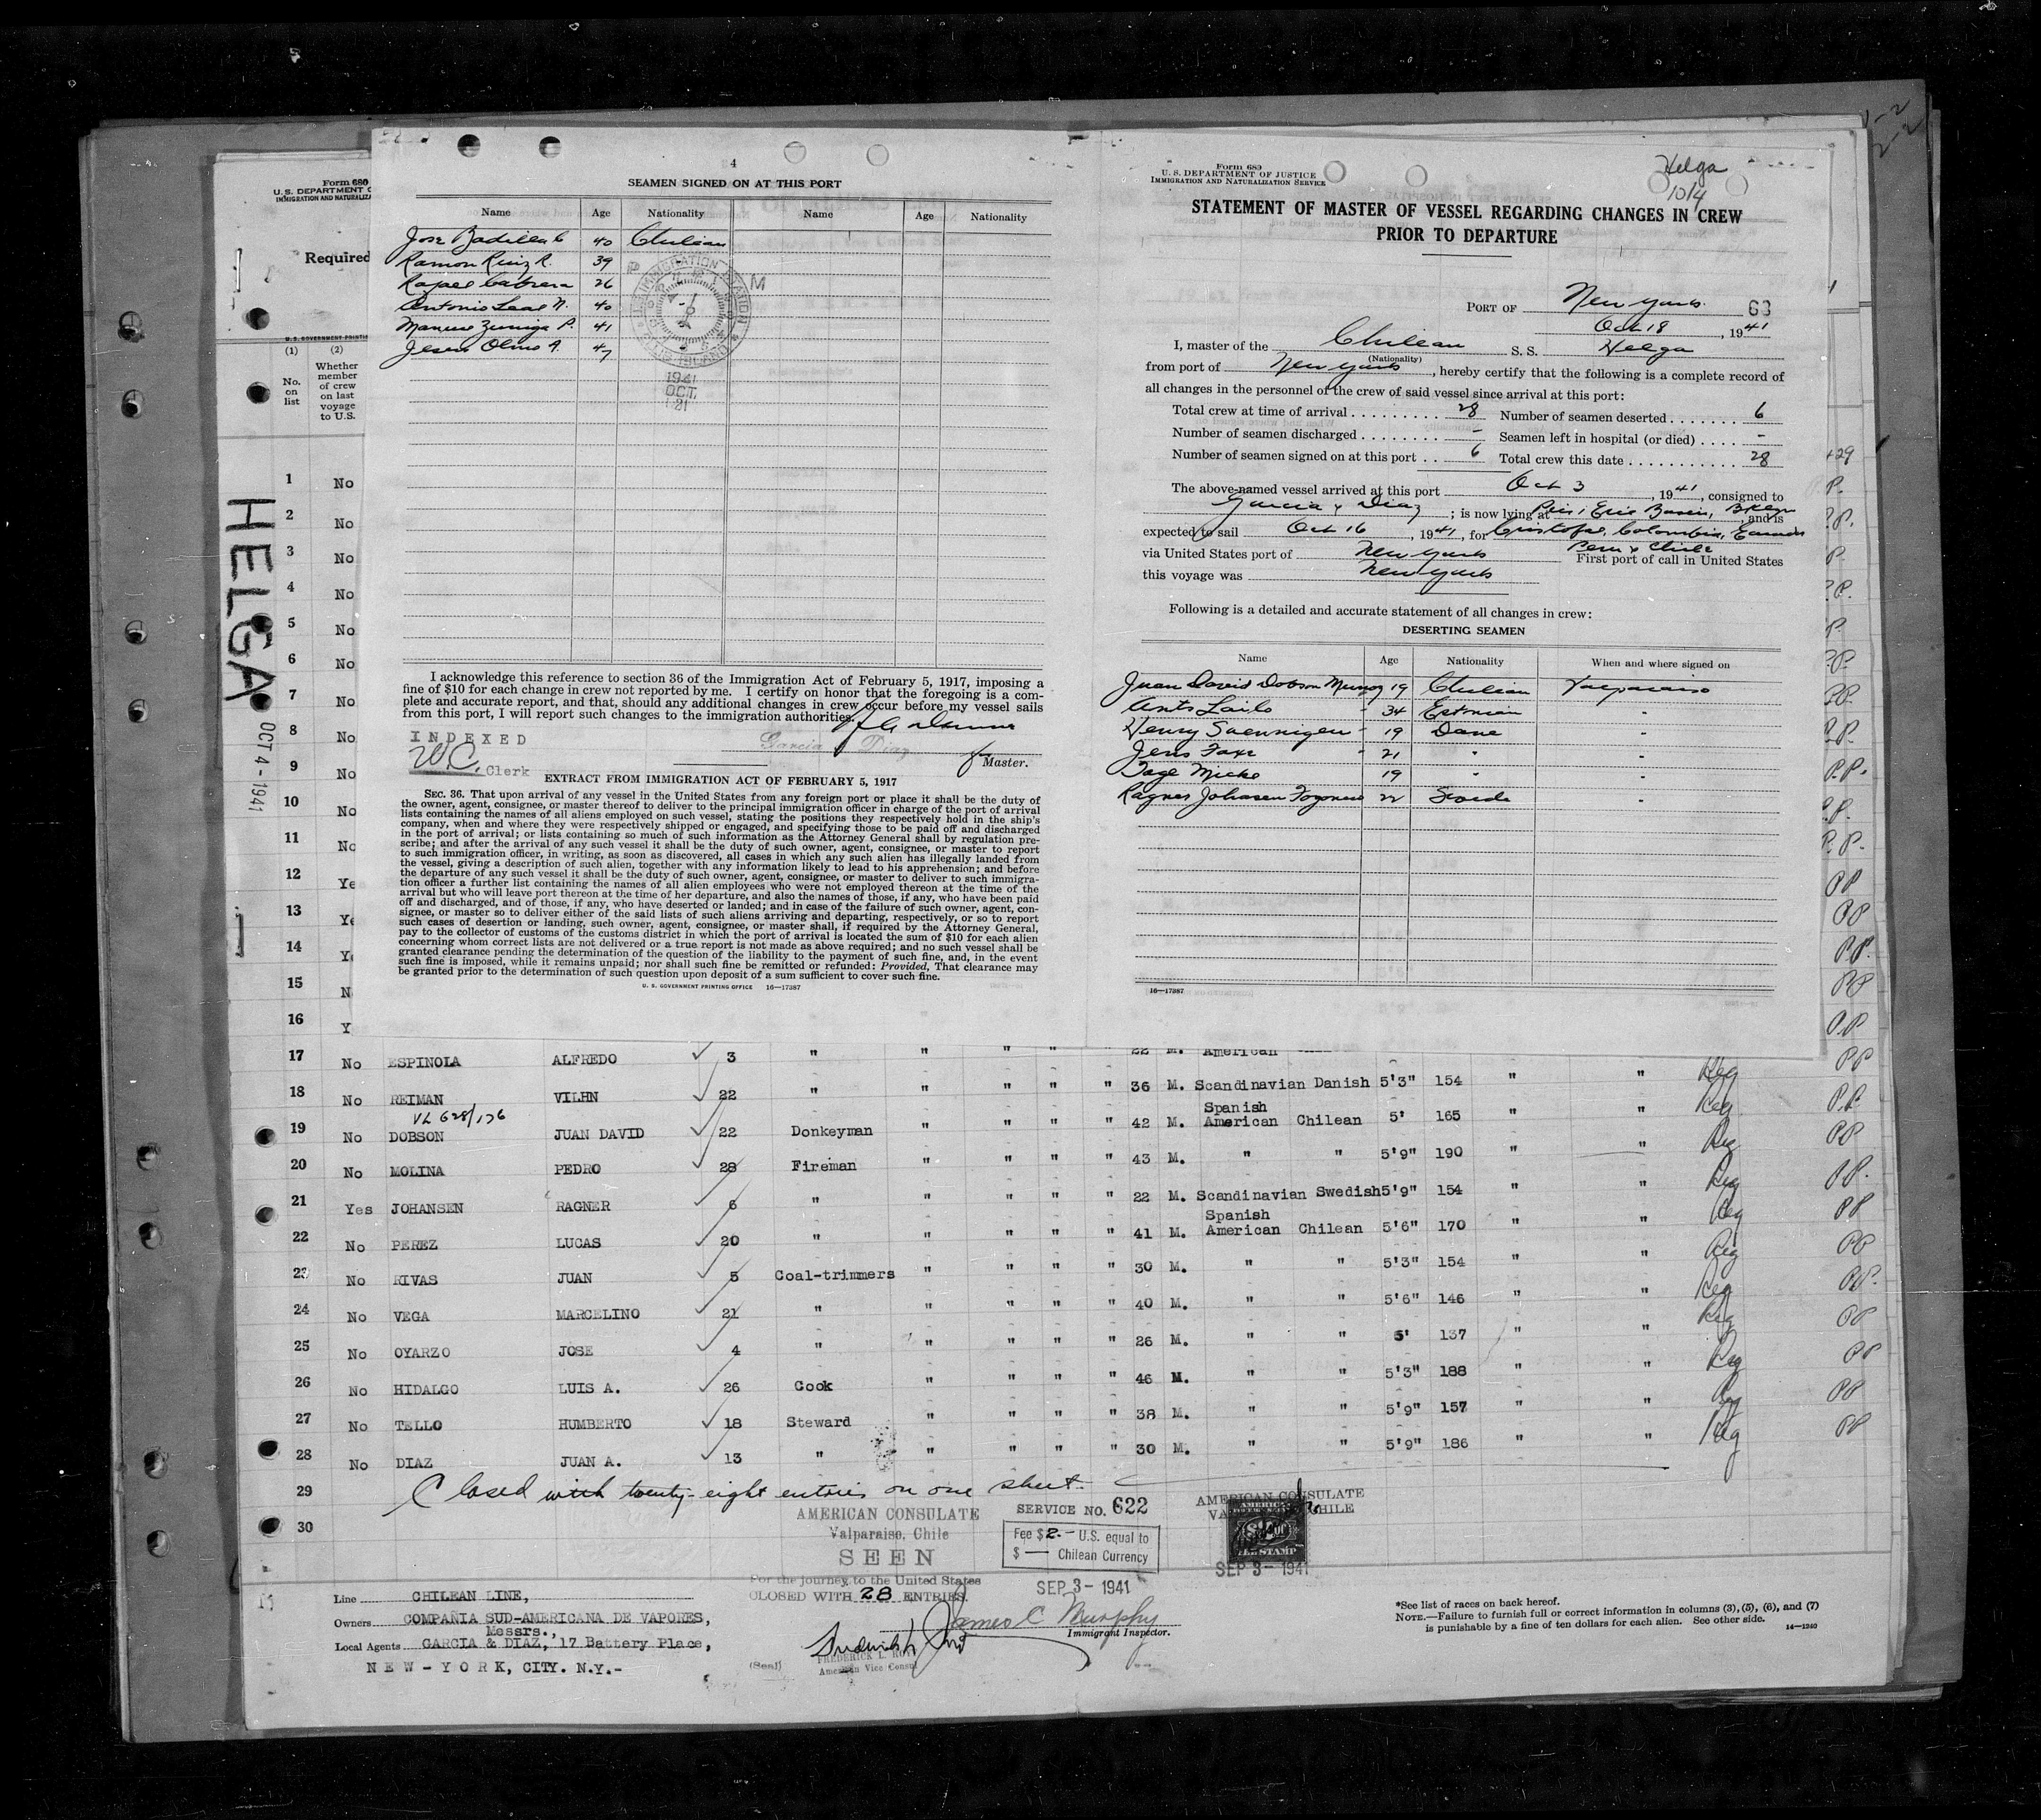 4
SEAMEN SIGNED ON AT THIS PORT
Name Age Nationality Name Age Nationality
Jose Badilla C 40 Chilean
Ramon Ruiz R. 39
Rafael Cabrera 26
Antonio Leal N. 40
Manuel Zuniga P. 41
Jesus Olmo A. 47
U.S. IMMIGRATION STATION
1941
OCT.
21
I acknowledge this reference to section 36 of the Immigration Act of February 5, 1917, imposing a
fine of $10 for each change in crew not reported by me. I certify on honor that the foregoing is a com-
plete and accurate report, and that, should any additional changes in crew occur before my vessel sails
from this port, I will report such changes to the immigration authorities.
INDEXED
W.C. Clerk
Garcia Diaz
Master.
EXTRACT FROM IMMIGRATION ACT OF FEBRUARY 5, 1917
SEC. 36. That upon arrival of any vessel in the United States from any foreign port or place it shall be the duty of
the owner, agent, consignee, or master thereof to deliver to the principal immigration officer in charge of the port of arrival
lists containing the names of all aliens employed on such vessel, stating the positions they respectively hold in the ship's
company, when and where they were respectively shipped or engaged, and specifying those to be paid off and discharged
in the port of arrival; or lists containing so much of such information as the Attorney General shall by regulation pre-
scribe; and after the arrival of any such vessel it shall be the duty of such owner, agent, consignee, or master to report
to such immigration officer, in writing, as soon as discovered, all cases in which any such alien has illegally landed from
the vessel, giving a description of such alien, together with any information likely to lead to his apprehension; and before
the departure of any such vessel it shall be the duty of such owner, agent, consignee, or master to deliver to such immigra-
tion officer a further list containing the names of all alien employees who were not employed thereon at the time of the
arrival but who will leave port thereon at the time of her departure, and also the names of those, if any, who have been paid
off and discharged, and of those, if any, who have deserted or landed; and in case of the failure of such owner, agent, con-
signee, or master so to deliver either of the said lists of such aliens arriving and departing, respectively, or so to report
such cases of desertion or landing, such owner, agent, consignee, or master shall, if required by the Attorney General,
pay to the collector of customs of the customs district in which the port of arrival is located the sum of $10 for each alien
concerning whom correct lists are not delivered or a true report is not made as above required; and no such vessel shall be
granted clearance pending the determination of the question of the liability to the payment of such fine, and, in the event
such fine is imposed, while it remains unpaid; nor shall such fine be remitted or refunded: Provided, That clearance may
be granted prior to the determination of such question upon deposit of a sum sufficient to cover such fine.
U. S. GOVERNMENT PRINTING OFFICE 16—17387
Form 689
U. S. DEPARTMENT OF JUSTICE
IMMIGRATION AND NATURALIZATION SERVICE
Helga
10/4
STATEMENT OF MASTER OF VESSEL REGARDING CHANGES IN CREW
PRIOR TO DEPARTURE
PORT OF New York 63
Oct 18, 1941
I, master of the Chilean S. S. Helga
(Nationality)
from port of New York, hereby certify that the following is a complete record of
all changes in the personnel of the crew of said vessel since arrival at this port:
Total crew at time of arrival 28 Number of seamen deserted 6
Number of seamen discharged - Seamen left in hospital (or died) -
Number of seamen signed on at this port 6 Total crew this date 28
The above-named vessel arrived at this port Oct 3, 1941, consigned to
Garcia y Diaz; is now lying at Pier 1 Erie Basin, Bklyn, and is
expected to sail Oct 16, 1941, for Cristobal, Colombia, Ecuador
Peru & Chile
via United States port of New York First port of call in United States
this voyage was New York
Following is a detailed and accurate statement of all changes in crew:
DESERTING SEAMEN
Name Age Nationality When and where signed on
Juan David Dobson Munoz 19 Chilean Valparaiso
Ants Lailo 34 Estonian "
Henry Saennigen 19 Dane "
Jens Faxe 21 " "
Tage Micko 19 " "
Ragner Johansen 22 Swede "
16—17387
Form 680
U. S. DEPARTMENT O
IMMIGRATION AND NATURALIZA
Required
(1) (2)
No. on list
Whether member of crew on last voyage to U.S.
HELGA
OCT 4 - 1941
1 No
2 No
3 No
4 No
5 No
6 No
7 No
8 No
9 No
10 No
11 No
12 Ye
13 Ye
14 Ye
15 N
16 Y
17 No ESPINOLA ALFREDO 3 " " " " " 22 M. American PP
18 No REIMAN VILHN 22 " " " " " 36 M. Scandinavian Danish 5'3" 154 " " Reg P.P.
VL 628/176
19 No DOBSON JUAN DAVID 22 Donkeyman " " " " 42 M. Spanish American Chilean 5' 165 " " Reg PP
20 No MOLINA PEDRO 28 Fireman " " " " 43 M. " " 5'9" 190 " " Reg P.P.
21 Yes JOHANSEN RAGNER 6 " " " " " 22 M. Scandinavian Swedish 5'9" 154 " " Reg PP
22 No PEREZ LUCAS 20 " " " " " 41 M. Spanish American Chilean 5'6" 170 " " Reg PP
23 No RIVAS JUAN 5 Coal-trimmers " " " " 30 M. " " 5'3" 154 " " Reg PP.
24 No VEGA MARCELINO 21 " " " " " 40 M. " " 5'6" 146 " " Reg PP
25 No OYARZO JOSE 4 " " " " " 26 M. " " 5' 137 " " Reg PP
26 No HIDALGO LUIS A. 26 Cook " " " " 46 M. " " 5'3" 188 " " Reg PP
27 No TELLO HUMBERTO 18 Steward " " " " 38 M. " " 5'9" 157 " " Reg PP
28 No DIAZ JUAN A. 13 " " " " " 30 M. " " 5'9" 186 " " Reg PP
29 Closed with twenty-eight entries on one sheet.
30
AMERICAN CONSULATE
Valparaiso, Chile
SEEN
For the journey to the United States
CLOSED WITH 28 ENTRIES.
SERVICE NO. 622
Fee $2.— U.S. equal to
$ — Chilean Currency
SEP 3 - 1941
AMERICAN CONSULATE
SEP 3 - 1941
James C Murphy
Immigrant Inspector.
FREDERICK L. ROYT
American Vice Consul
(Seal)
Line CHILEAN LINE,
Owners COMPAÑIA SUD-AMERICANA DE VAPORES,
Messrs.,
Local Agents GARCIA & DIAZ, 17 Battery Place,
NEW-YORK, CITY. N.Y.-
*See list of races on back hereof.
NOTE.—Failure to furnish full or correct information in columns (3), (5), (6), and (7)
is punishable by a fine of ten dollars for each alien. See other side.
14—1240